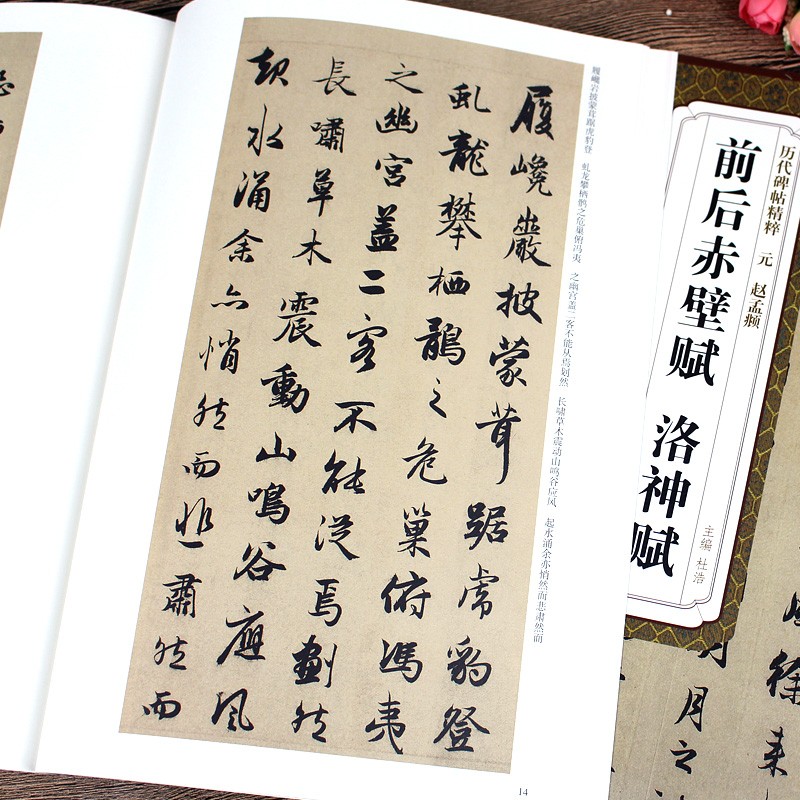 履巉巖披蒙茸踞虎豹登
虬龍攀栖鶻之危巢俯馮夷
之幽宮蓋二客不能從焉劃然
長嘯草木震動山鳴谷應風
起水涌余亦悄然而悲肅然而
履巉岩披蒙茸踞虎豹登 虬龙攀栖鹘之危巢俯冯夷 之幽宫盖二客不能从焉划然 长啸草木震动山鸣谷应风 起水涌余亦悄然而悲肃然而
14
历代碑帖精粹 元 赵孟頫
前后赤壁赋 洛神赋
主编 杜浩
徐来
月之